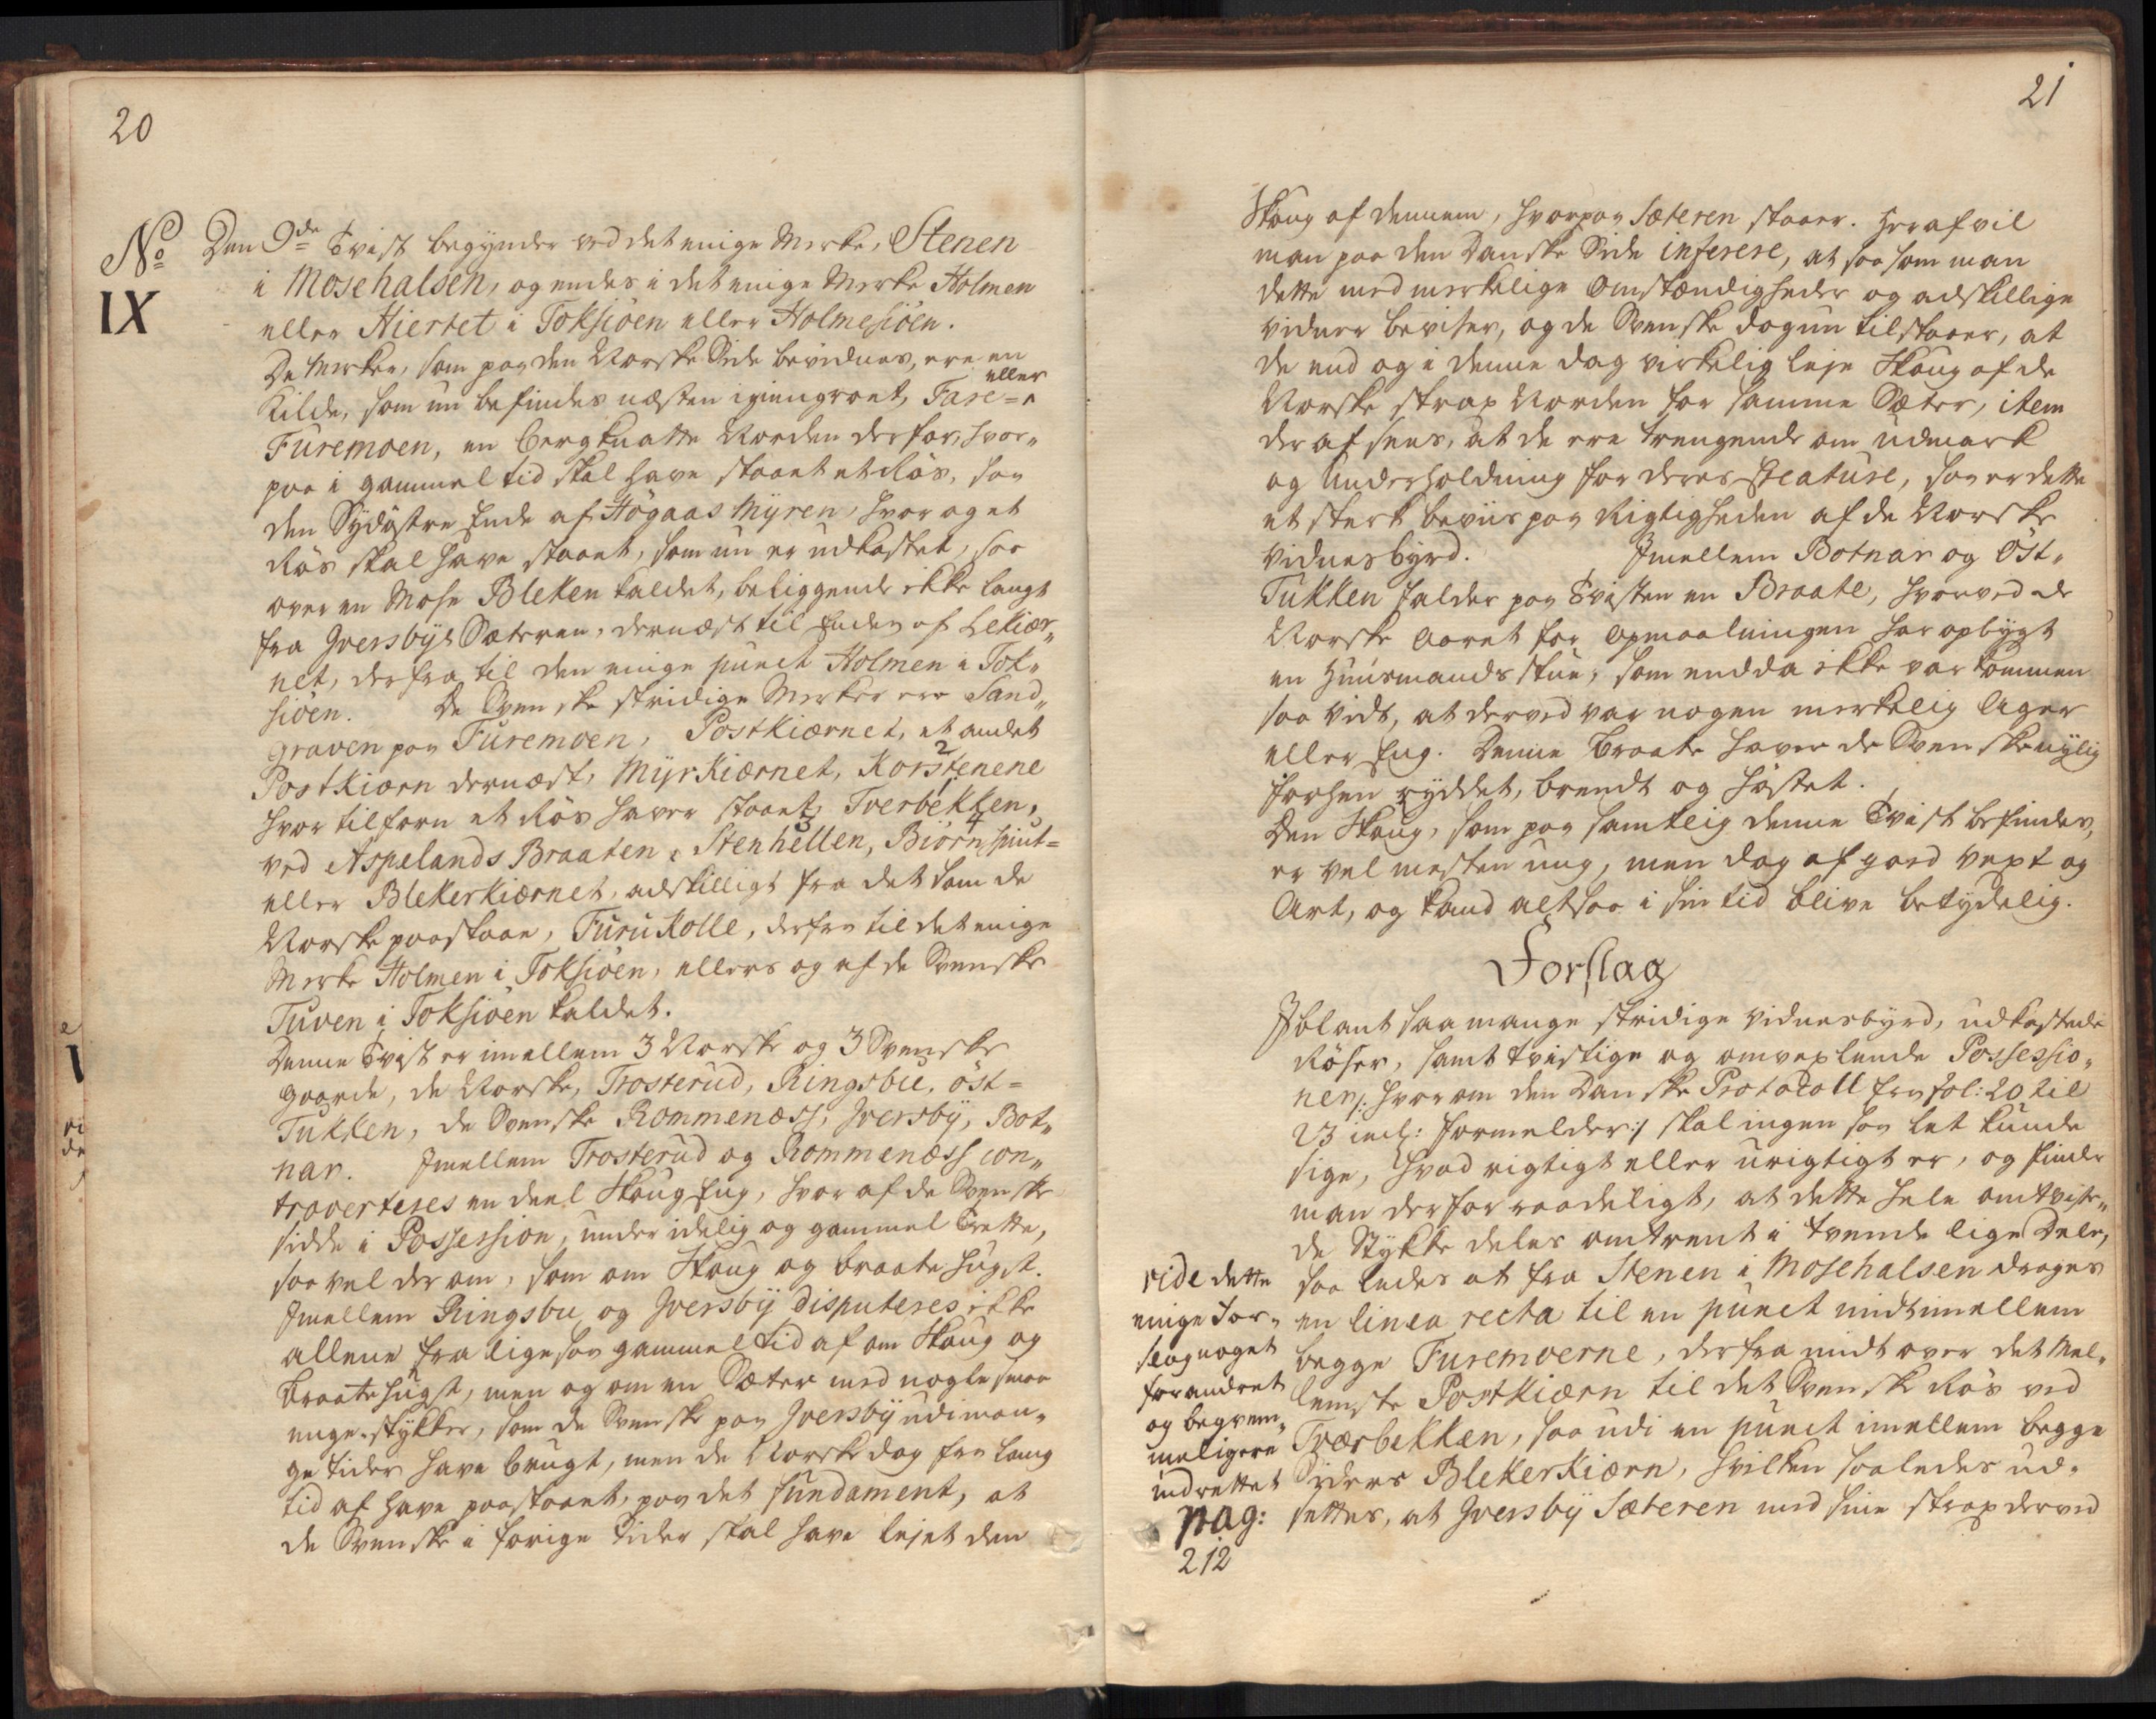 20
No
IX
Den 9de Tvist begynder ved det enige Merke, Stenen
i Mosehalsen, og endes i det enige Merke Holmen
eller Hiertet i Toksiöen eller Holmesiöen.
De Merker, som paa den Norske Side bevidnes, ere en
Kilde, som nu befindes næsten igiengroet, Fare= eller
Furemoen, en bergknatte Norden derfor, hvor„
paa i gammel tid skal have staaet et Rös, saa
den Sydöstre Ende af Högaas Myren, hvor og et
Rös skal have staaet, som nu er udkastet, saa
over en Mose Bleken kaldet, beliggende ikke langt
fra Iversbye Sæteren, dernæst til Enden af Lekiær„
net, derfra til den enige punct Holmen i Tok„
siöen. De Svenske stridige Merker ere Sand„
graven paa Furemoen, Postkiærnet, et andet
Postkiærn dernæst, Myrkiærnet, 2 Korstenene
hvor tilforn et Rös haver staaet, 1 Tverbekken,
ved Aspelands Braaten, 3 Stenhellen, 4 Biörnhiut=
eller Blekerkiærnet, adskilligt fra det som de
Norske paastaae, Furukolle, derfra til det enige
Merke Holmen i Toksiöen, ellers og af de Svenske
Tuven i Toksiöen kaldet.
Denne Tvist er imellem 3 Norske og 3 Svenske
gaarde, de Norske, Trosterud, Ringsbu, öst=
Tukken, de Svenske Rommenæss, Iversbÿ, Bot„
nar. Imellem Trosterud og Rommenæss con„
troverteres en deel Skoug Eng, hvoraf de Svenske
sidde i Possession, under idelig og gammel Trette,
saa vel der om, som om Skoug og braate hugst.
Imellem Ringsbu og Iversbÿ disputeres ikke
allene fra lige saa gammel tid af om Skoug og
braate hugst, men og om en Sæter med nogle smaa
enge-stykker, som de Svenske paa Iversbÿ udi man„
ge tider have brugt, men de Norske dog fra lang
tid af have paastaaet, paa det fundament, at
de Svenske i forige tider skal have lejet den
21
Skoug af dennem, hvorpaa Sæteren staaer. Heraf vil
man paa den Danske Side inferere, at saasom man
dette med merkelige Omstændigheder og adskillige
vidner beviser, og de Svenske dog nu tilstaaer, at
de end og i denne dag virkelig leje Skoug af de
Norske strax Norden for samme Sæter, item
deraf sees, at de ere trengende om udmark
og Underholdning for deres Creature, saa er dette
et sterk beviis paa Rigtigheden af de Norske
vidnesbyrd. Imellem Botnar og Öst„
Tukken falder paa Tvisten en Braate, hvorved de
Norske Aaret for Opmaalningen har opbygt
en Huusmands stue, som endda ikke var kommen
saa vidt, at derved var nogen merkelig Ager
eller Eng. Denne braate haver de Svenske nylig
forhen ryddet, brendt og höstet.
Den Skoug, som paa samtlig denne Tvist befindes,
er vel mesten ung, men dog af god vext og
Art, og kand altsaa i sin tid blive betydelig.
Forslag
Iblant saa mange stridige vidnesbyrd, udkastede
Röser, samt tvistige og omvexlende Possessio„
ner /: hvorom den Danske Protocoll fra fol: 20 til
23 incl: formelder :/ skal ingen saa let kunde
sige, hvad rigtigt eller urigtigt er, og finder
man derfor raadeligt, at dette hele omtviste„
de Stykke deles omtrent i tvende lige Dele,
saaledes at fra Stenen i Mosehalsen drages
en linea recta til en punct midt imellem
begge Furemoerne, derfra midt over det Mel„
lemste Postkiærn til det Svenske Rös ved
Tværbekken, saa udi en punct imellem begge
Siders Blekerkiærn, hvilken saaledes ud„
settes, at Iversbÿ Sæteren med sine strax derved
vide dette
enige For„
slag noget
forandret
og beqvem„
meligere
indrettet
pag:
212